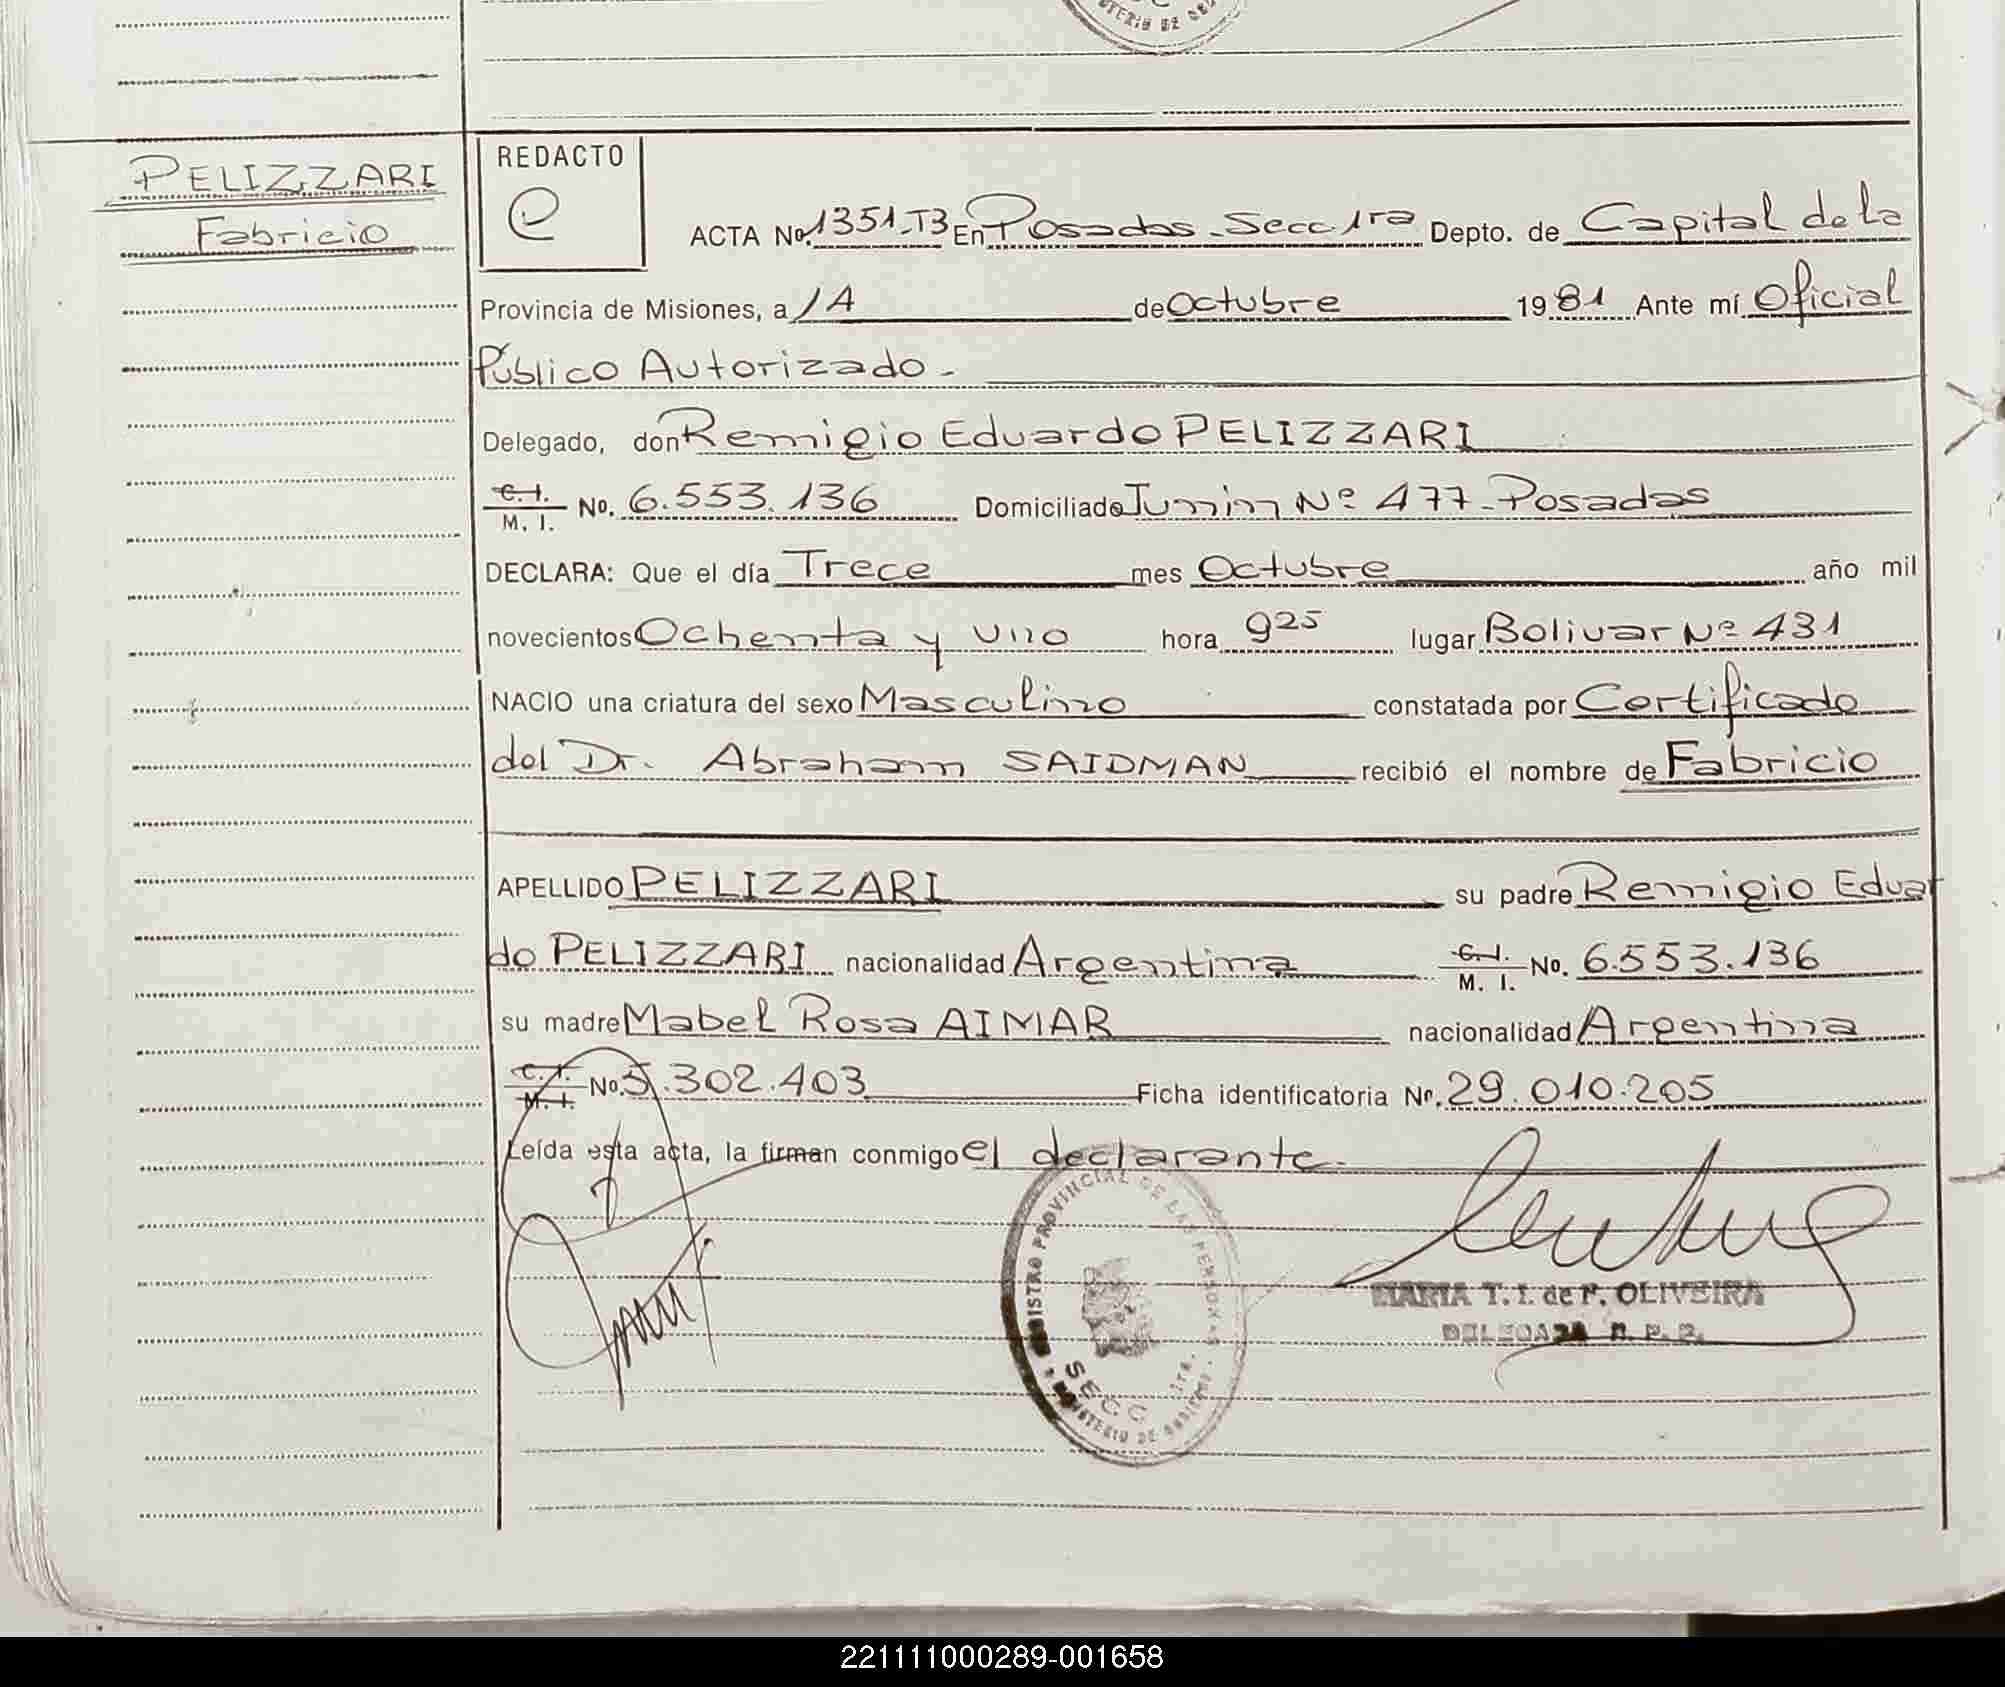 PELIZZARI
Fabricio
REDACTO
e
ACTA No. 1351-T3 En Posadas - Secc 1ra Depto. de Capital de la
Provincia de Misiones, a 14 de Octubre 1981 Ante mí Oficial
Público Autorizado.-
Delegado, don Remigio Eduardo PELIZZARI
C. I.
M. I. No. 6.553.136 Domiciliado Junin Nº 477- Posadas
DECLARA: Que el día Trece mes Octubre año mil
novecientos Ochenta y uno hora 9 25 lugar Bolivar Nº 431
NACIO una criatura del sexo Masculino constatada por Certificado
del Dr. Abraham SAIDMAN recibió el nombre de Fabricio
APELLIDO PELIZZARI su padre Remigio Eduar
do PELIZZARI nacionalidad Argentina C. I.
M. I. No. 6.553.136
su madre Mabel Rosa AIMAR nacionalidad Argentina
C. I.
M. I. No. 5.302.403 Ficha identificatoria Nº. 29.010.205
Leída esta acta, la firman conmigo el declarante.-
REGISTRO PROVINCIAL DE LAS PERSONAS
SECC. 1ra.
MINISTERIO DE GOBIERNO
MARIA T. I. de P. OLIVEIRA
DELEGADA R. P. P.
221111000289-001658